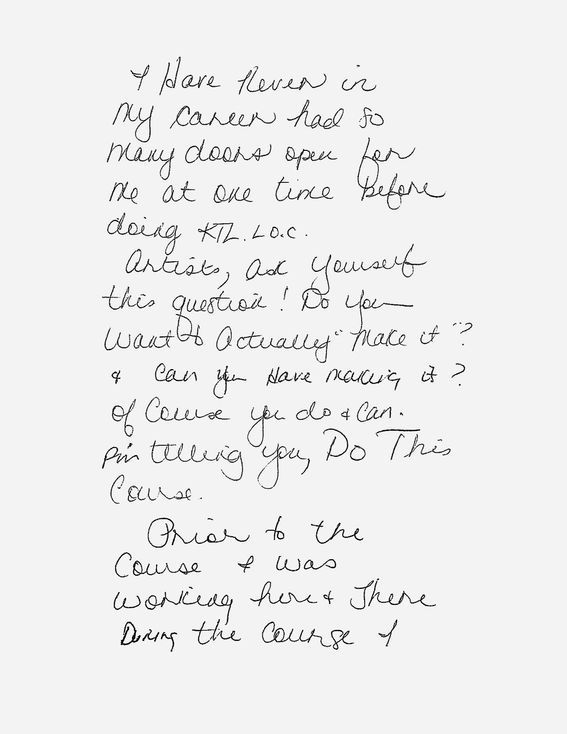 I Have Never in
my career had so
many doors open for
me at one time before
doing KTL. L.O.C.
Artists, ask yourself
this question! Do you
want to actually "make it"?
& Can you Have making it?
of Course you do & can.
I'm telling you, Do This
Course.
Prior to the
Course I was
working here & There
During the Course I